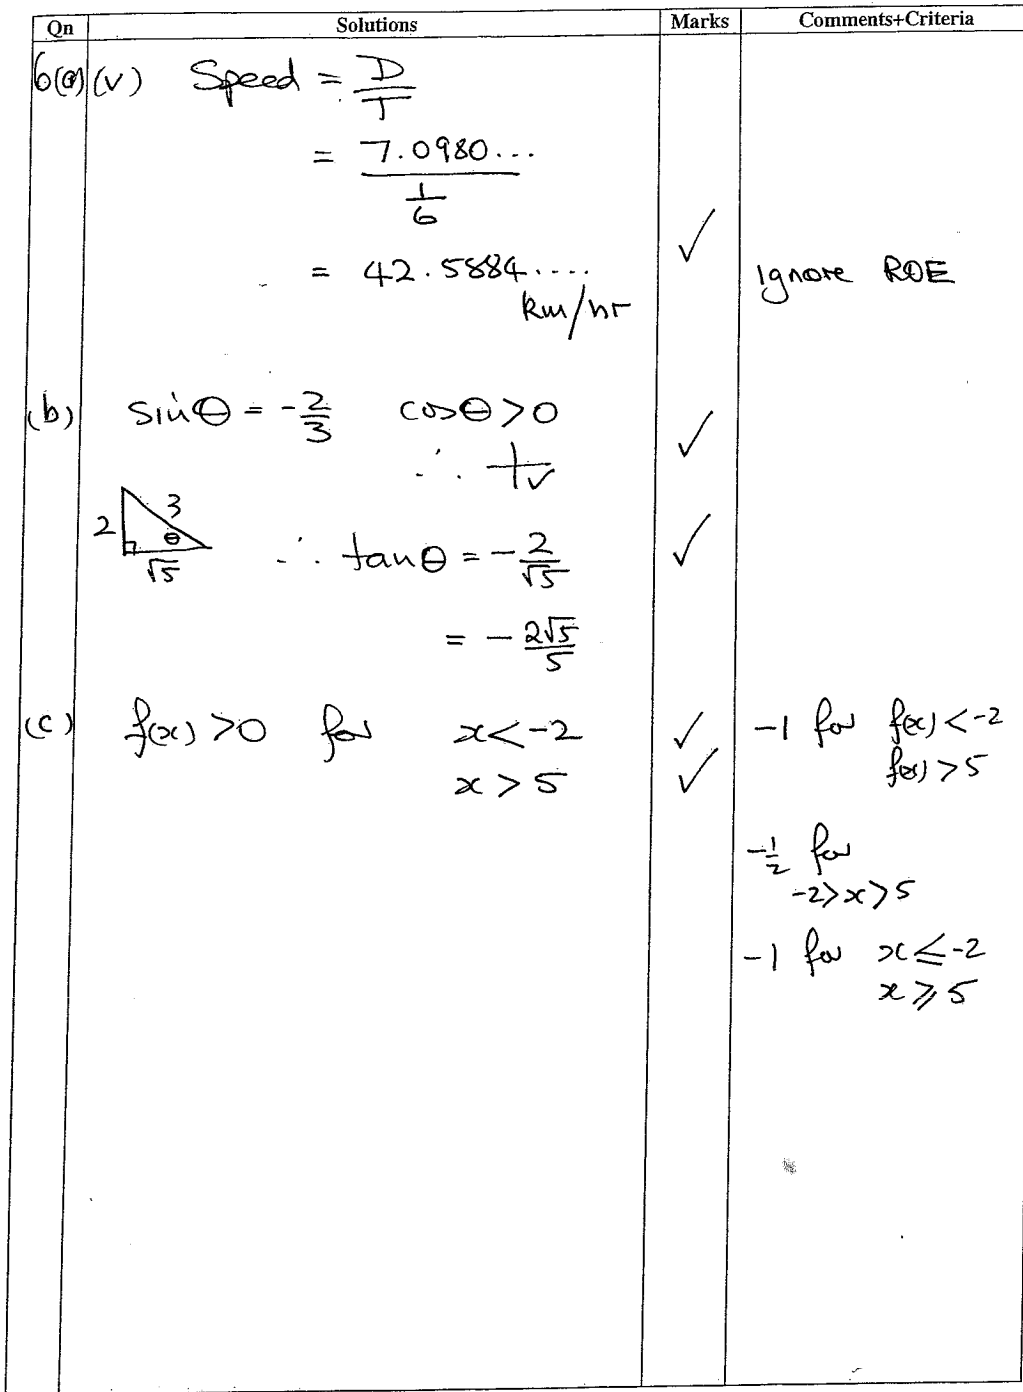 Qn Solutions Marks Comments+Criteria
6(a)(v) Speed = D/T
= 7.0980... / 1/6
= 42.5884.... km/hr ✓ Ignore ROE
(b) sinθ = -2/3 cosθ>0 ✓
∴
2 3 θ √5 ∴ tanθ = -2/√5 ✓
= -2√5/5
(c) f(x) >0 for x<-2 ✓ -1 for f(x)<-2
x > 5 ✓ f(x) > 5
-1/2 for
-2>x>5
-1 for x≤-2
x≥5